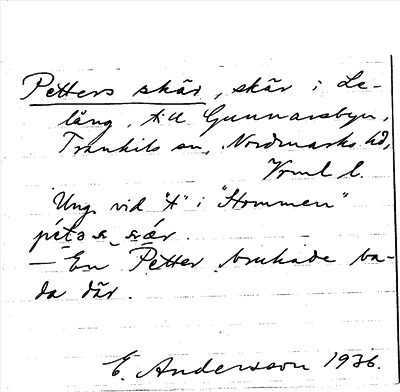 Petters skär, skär i Le-
lång, till Gunnarsbyn,
Trankils sn, Nordmarks hd,
Vrml l.
Ung. vid "t" i "Hommen"
— En Petter brukade ba-
da där.
E. Andersson 1936.